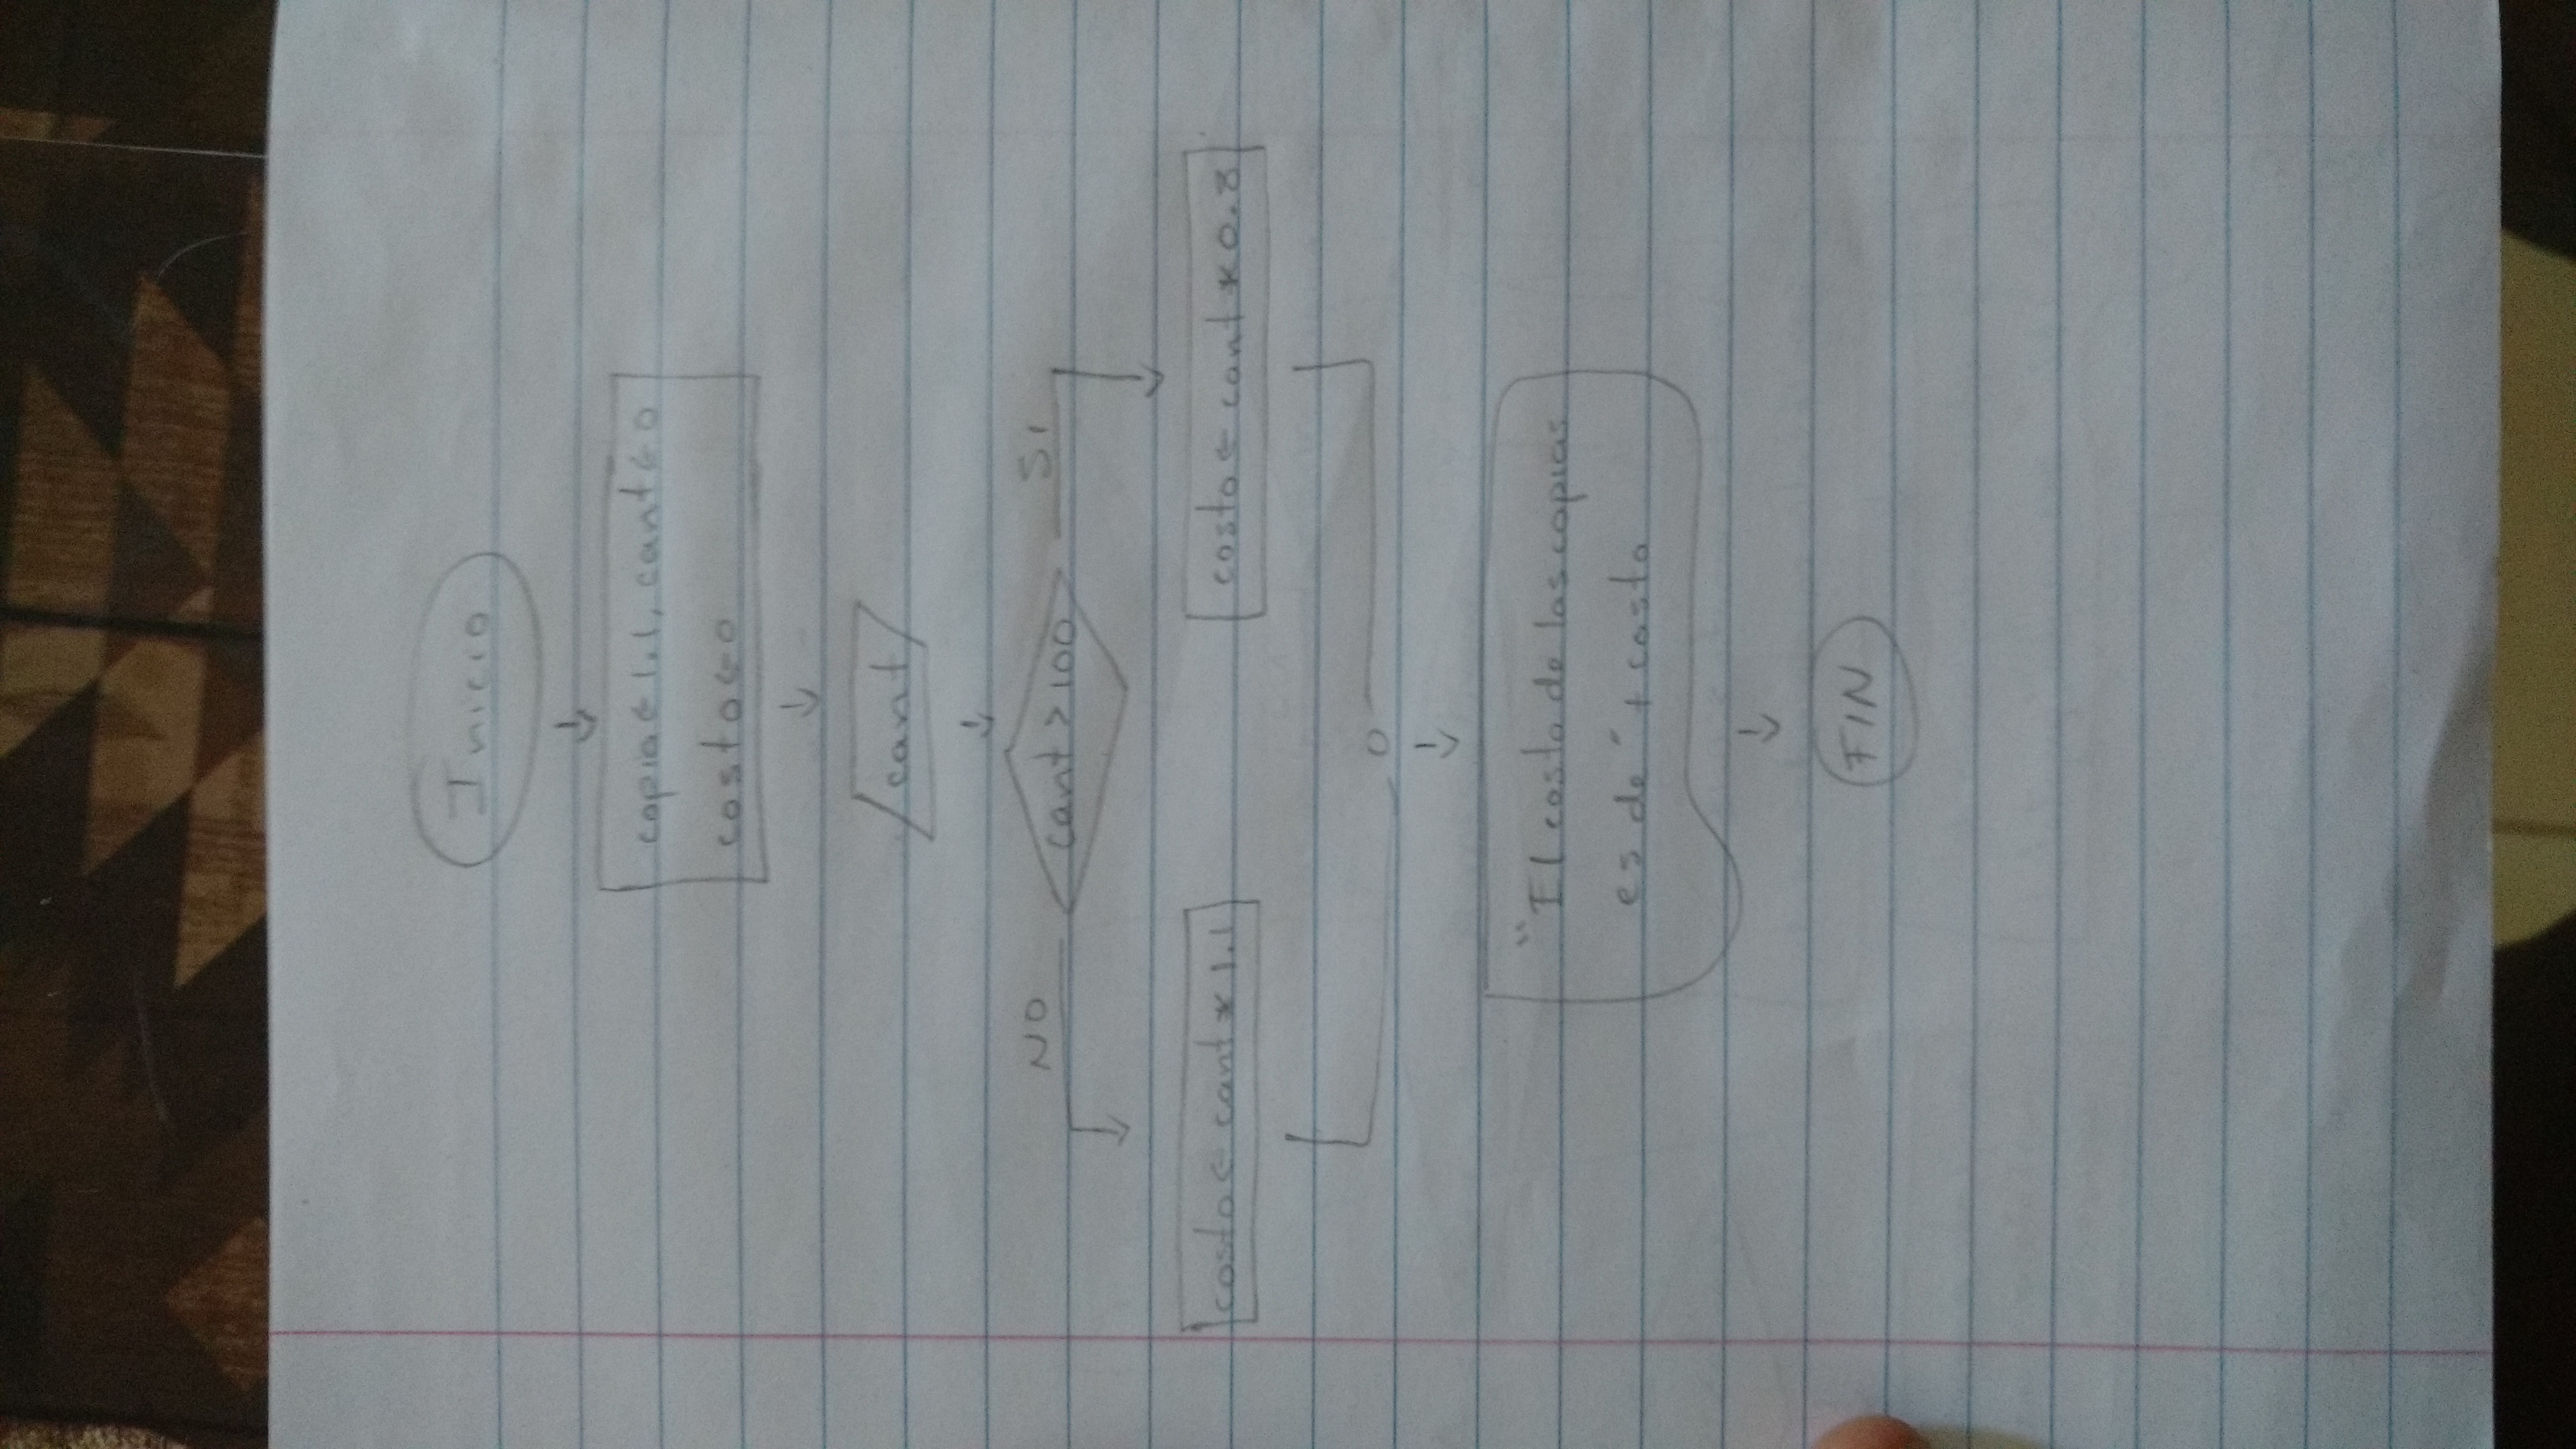 Inicio
copia ← 1.1, cant ← 0
costo ← 0
cant
cant > 100
NO
SI
costo ← cant * 1.1
costo ← cant * 0.8
"El costo de las copias
es de" + costo
FIN